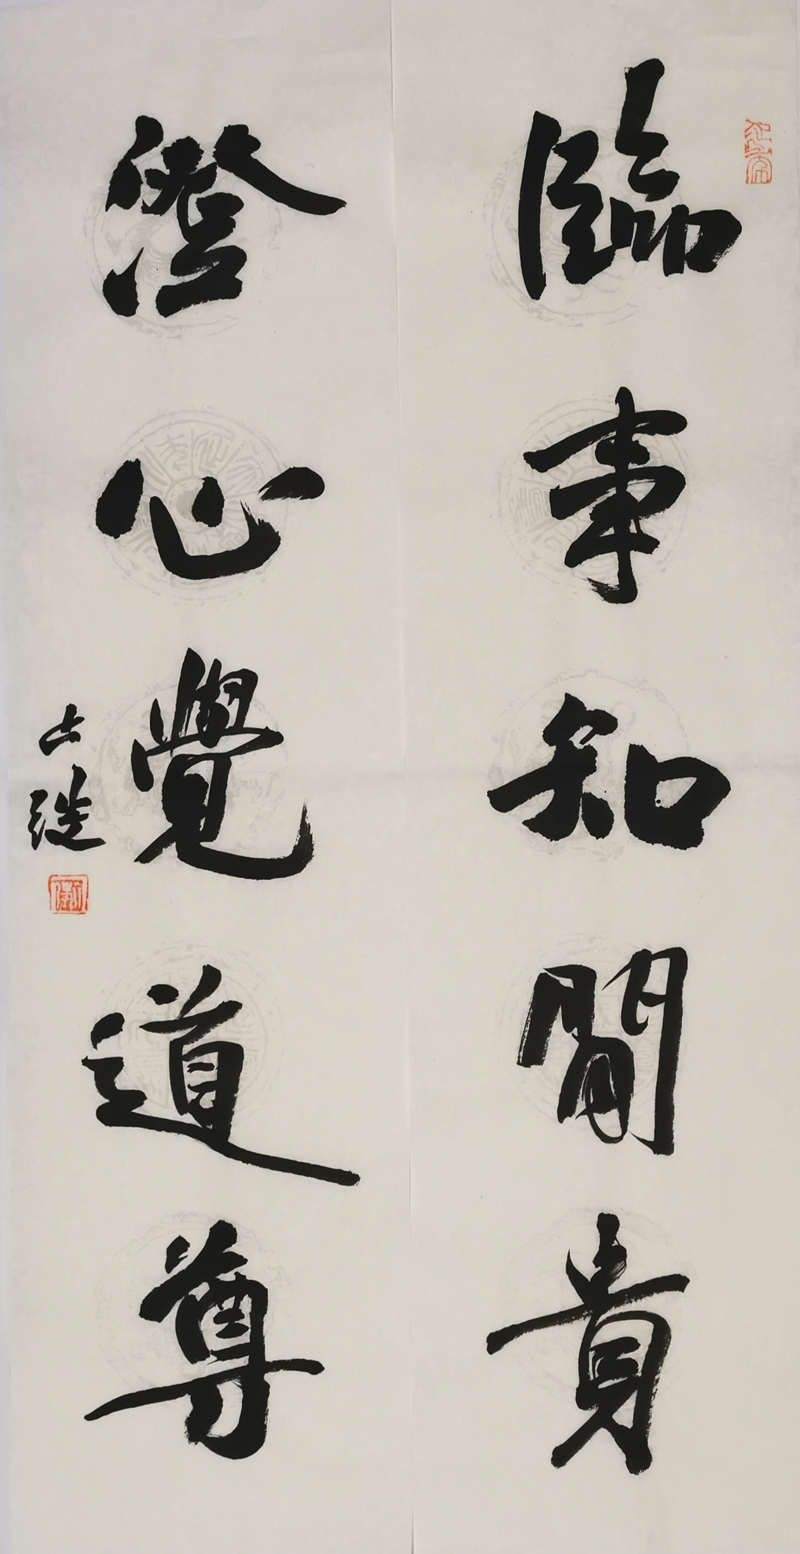 臨事知閒貴
澄心覺道尊